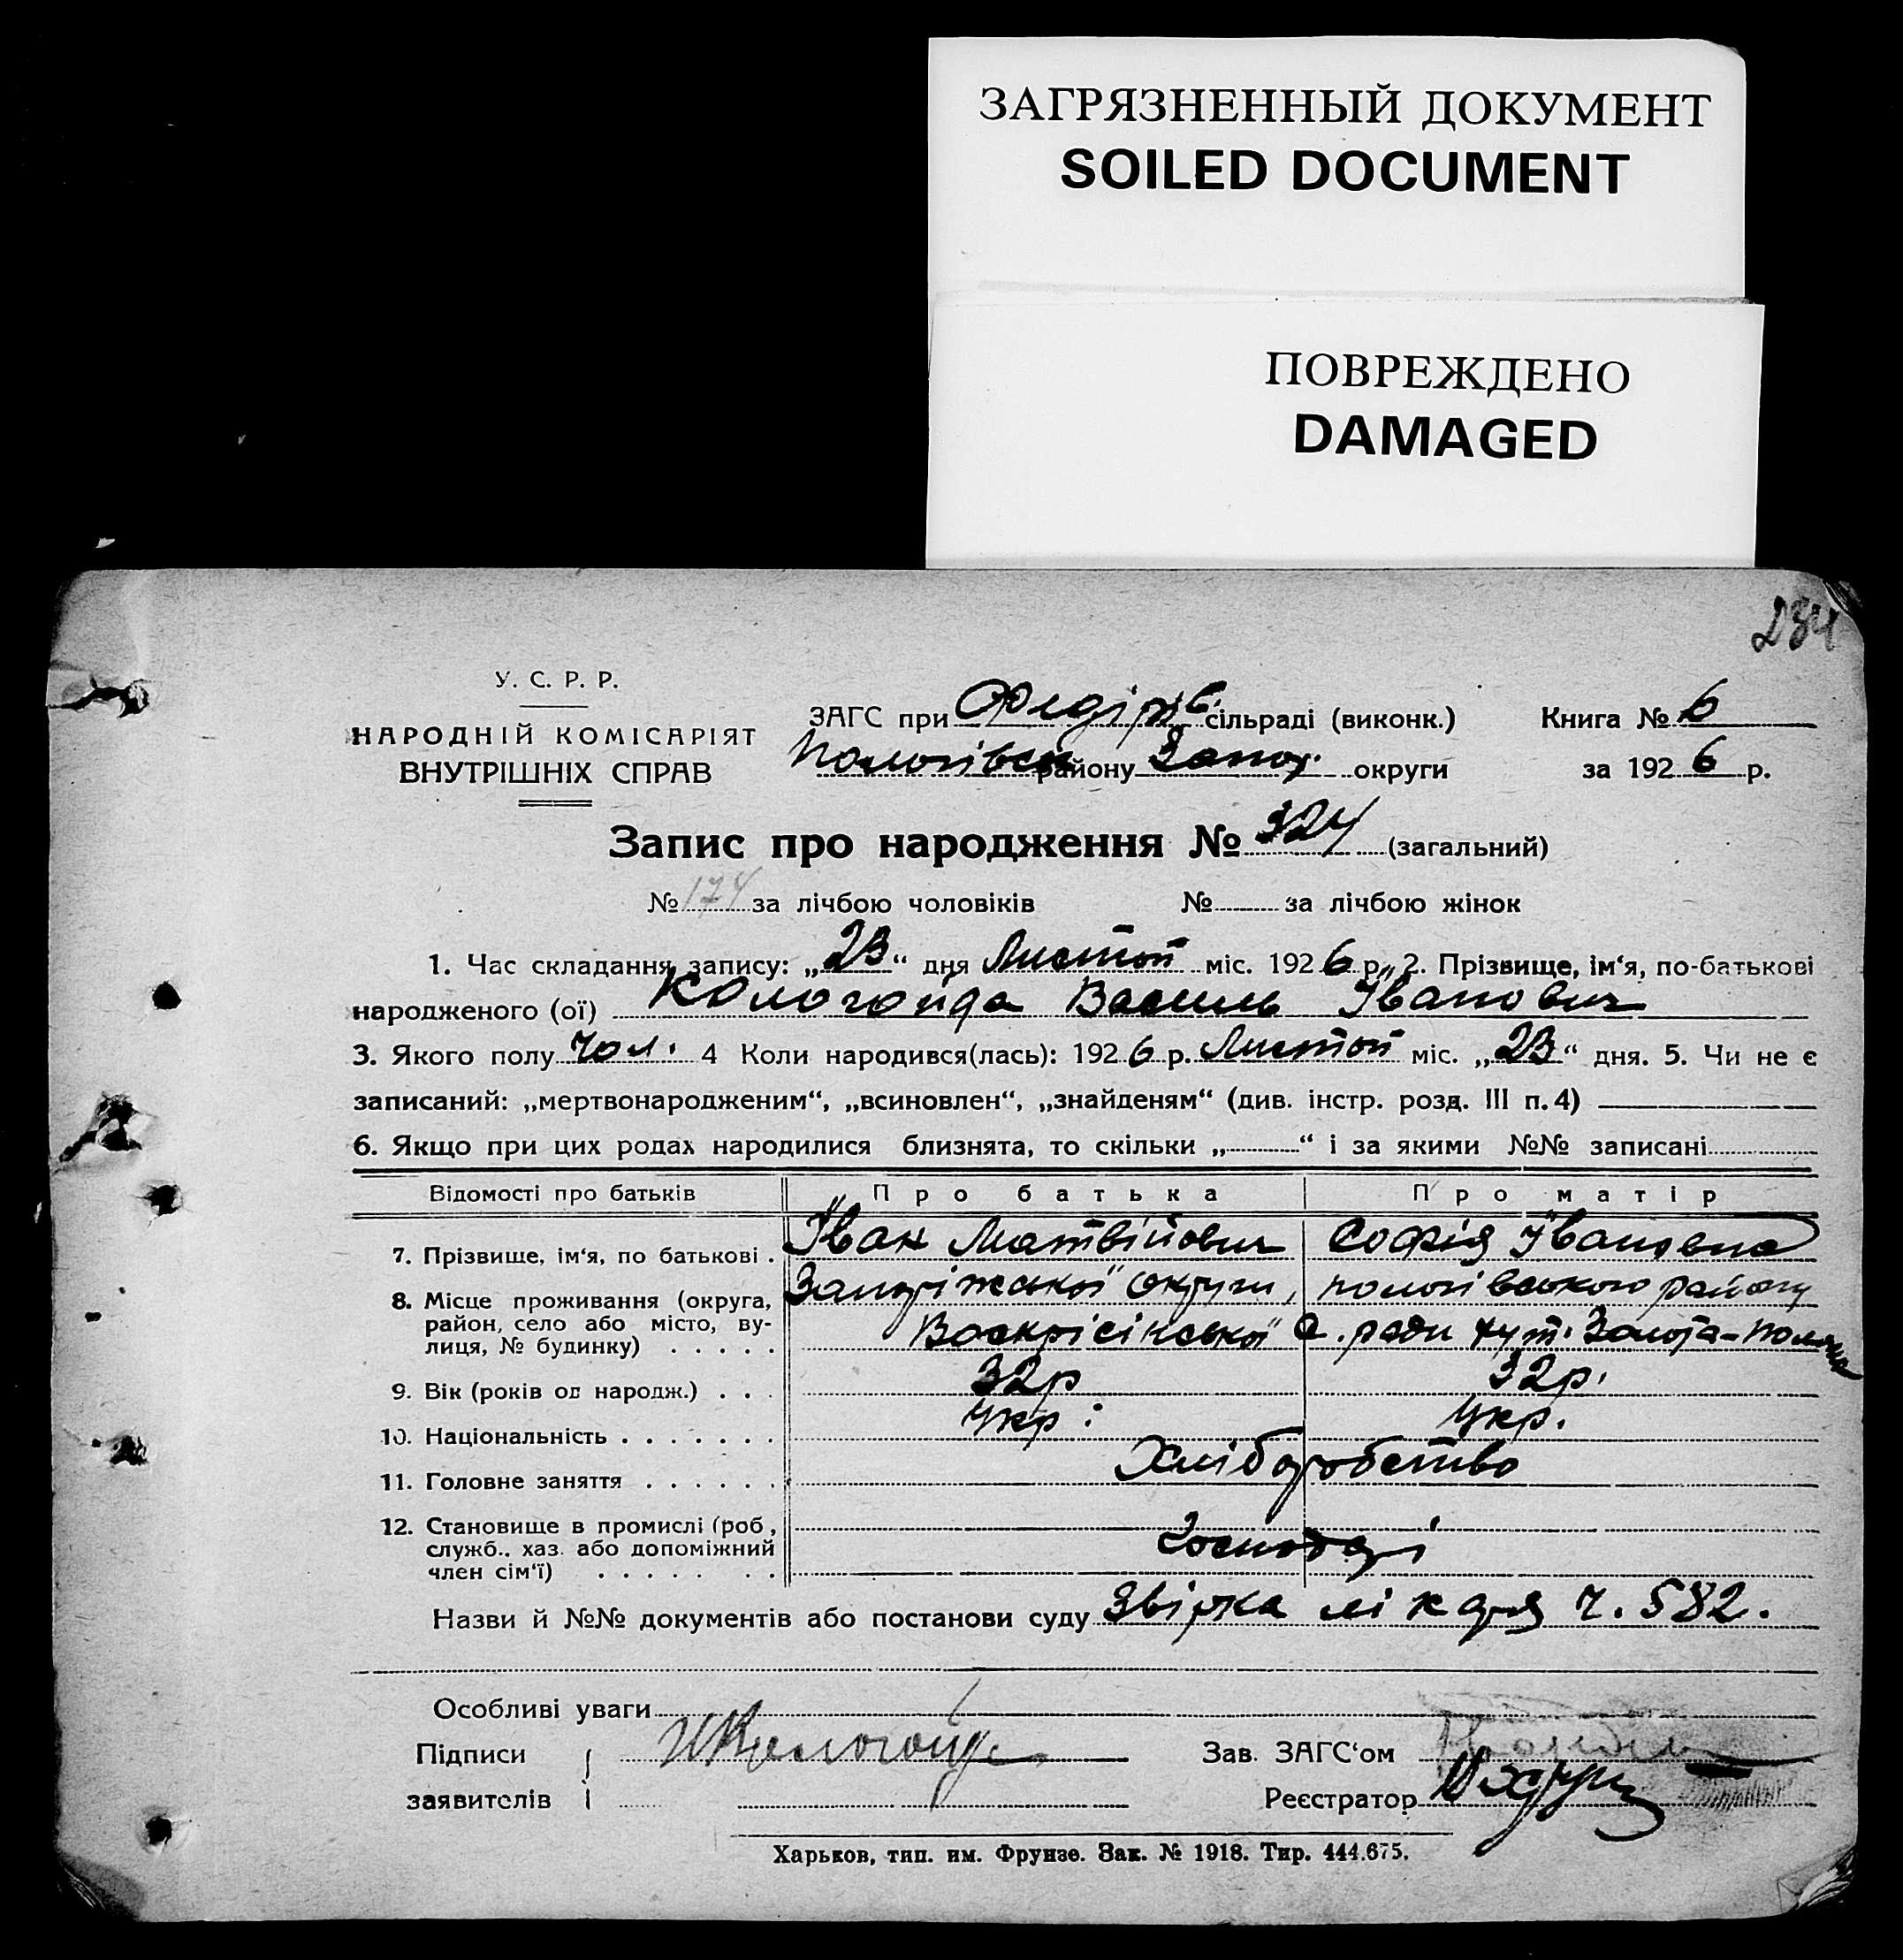 ЗАГРЯЗНЕННЫЙ ДОКУМЕНТ
SOILED DOCUMENT
ПОВРЕЖДЕНО
DAMAGED
234
У. С. Р. Р.
НАРОДНІЙ КОМІСАРІЯТ
ВНУТРІШНІХ СПРАВ
ЗАГС при Федірів. сільраді (виконк.) Книга № 6
Пологівськ району Запор. округи за 1926 р.
Запис про народження № 324 (загальний)
№ 174 за лічбою чоловіків № за лічбою жінок
1. Час складання запису: „23“ дня Листоп міс. 1926 р. 2. Прізвище, ім‘я, по-батькові
народженого (ої) Кологойда Василь Іванович
3. Якого полу чол. 4 Коли народився(лась): 1926 р. Листоп міс. „23“ дня. 5. Чи не є
записаний: „мертвонародженим“, „всиновлен“, „знайденям“ (див. інстр. розд. III п. 4)
6. Якщо при цих родах народилися близнята, то скільки „ “ і за якими №№ записані
Відомості про батьків Про батька Про матір
7. Прізвище, ім‘я, по батькові . Іван Матвійович Софія Івановна
8. Місце проживання (округа, Запоріжської округи, пологівського району
район, село або місто, ву- Воскрісінської с. ради хут. Золота-Поляна
лиця, № будинку) . . . . .
9. Вік (років од народж.) . . . 32р 32р.
10. Національність . . . . . . . Укр. Укр.
11. Головне заняття . . . . . . Хліборобство
12. Становище в промислі (роб.,
служб., хаз. або допоміжний Господарі
член сім‘ї) . . . . . . .
Назви й №№ документів або постанови суду Звірка лікаря ч. 582.
Особливі уваги
Підписи И Кологойда Зав. ЗАГС‘ом
заявителів Реєстратор
Харьков, тип. им. Фрунзе. Зак. № 1918. Тир. 444.675.